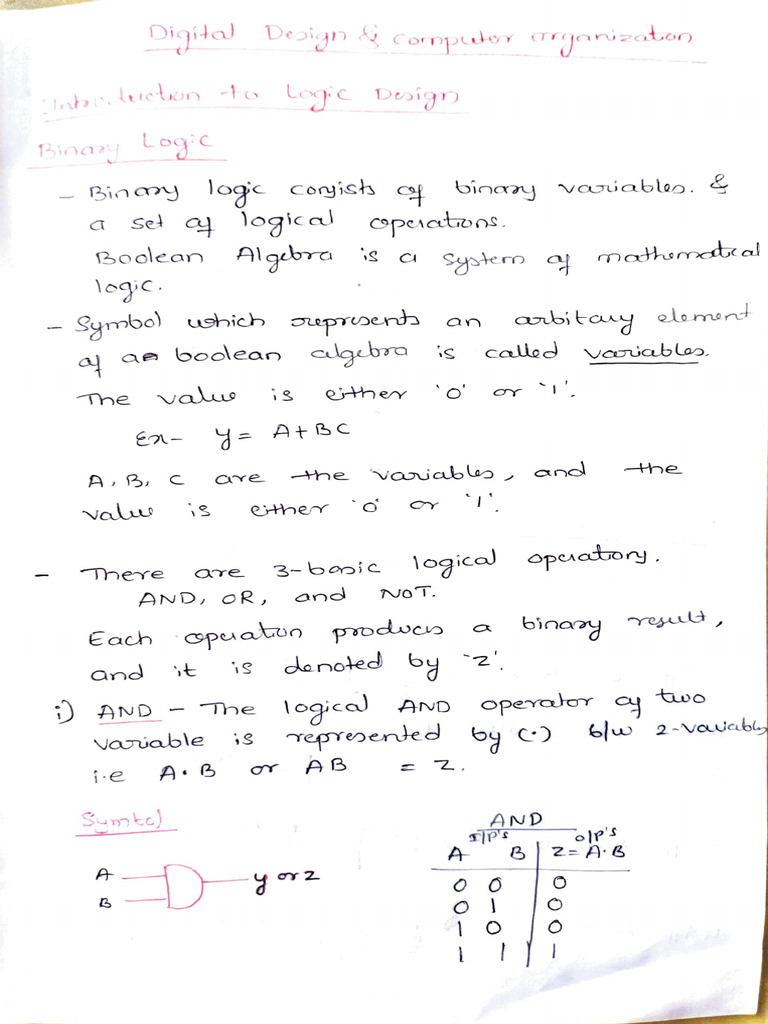 Digital Design & Computer organizaton
Introduction to Logic Design
Binary Logic
- Binary logic consists of binary variables. &
a set of logical operations.
Boolean Algebra is a system of mathematical
logic.
- Symbol which represents an arbitary element
of a boolean algebra is called variables.
The value is either '0' or '1'.
Ex- y = A+BC
A, B, C are the variables, and the
value is either '0' or '1'.
- There are 3-basic logical operations.
AND, OR, and NOT.
Each operation produces a binary result,
and it is denoted by 'Z'.
i) AND - The logical AND operator of two
variable is represented by (·) b/w 2-variables
i.e A·B or AB = Z.
Symbol
AND
I/P's O/P's
A B Z = A·B
0 0 0
0 1 0
1 0 0
1 1 1
A
B
y or z